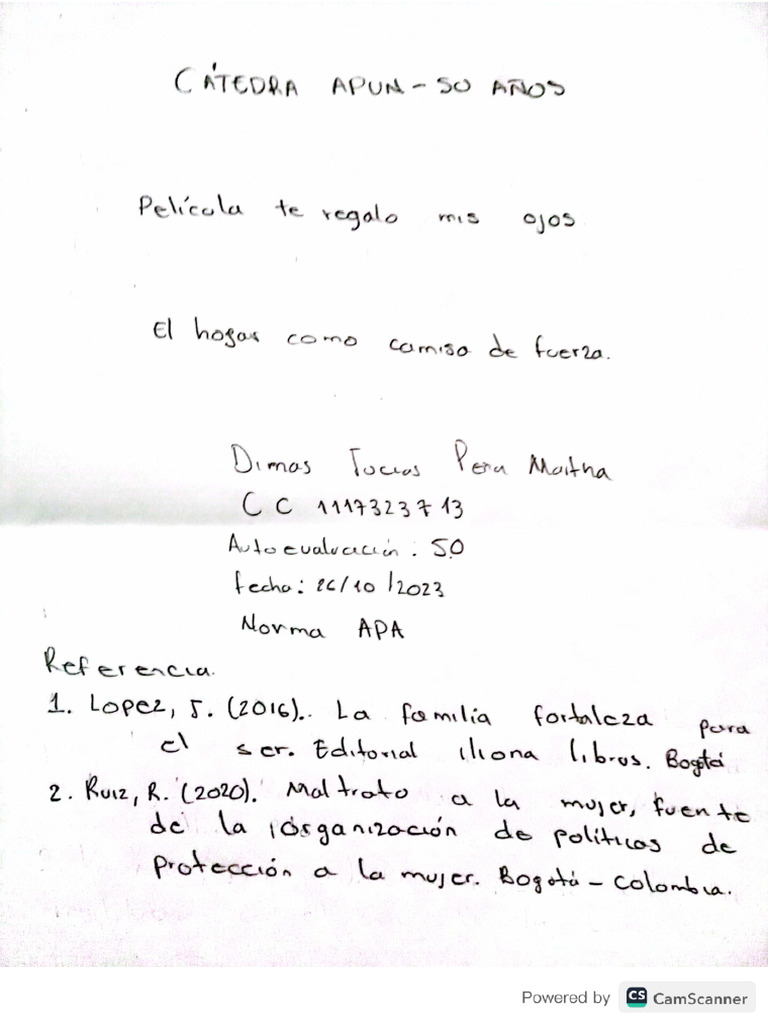 CÁTEDRA APUN - 50 AÑOS
Película te regalo mis ojos
El hogar como camisa de fuerza.
Dimas
CC 1117323713
Autoevaluación: 50
fecha: 26/10/2023
Norma APA
Referencia.
1. Lopez, J. (2016).. La familia fortaleza para
el ser. Editorial iliona libros. Bogotá
2. Ruiz, R. (2020). Maltrato a la mujer, fuente
de la iorganización de políticas de
Protección a la mujer. Bogotá - Colombia.
Powered by CS CamScanner